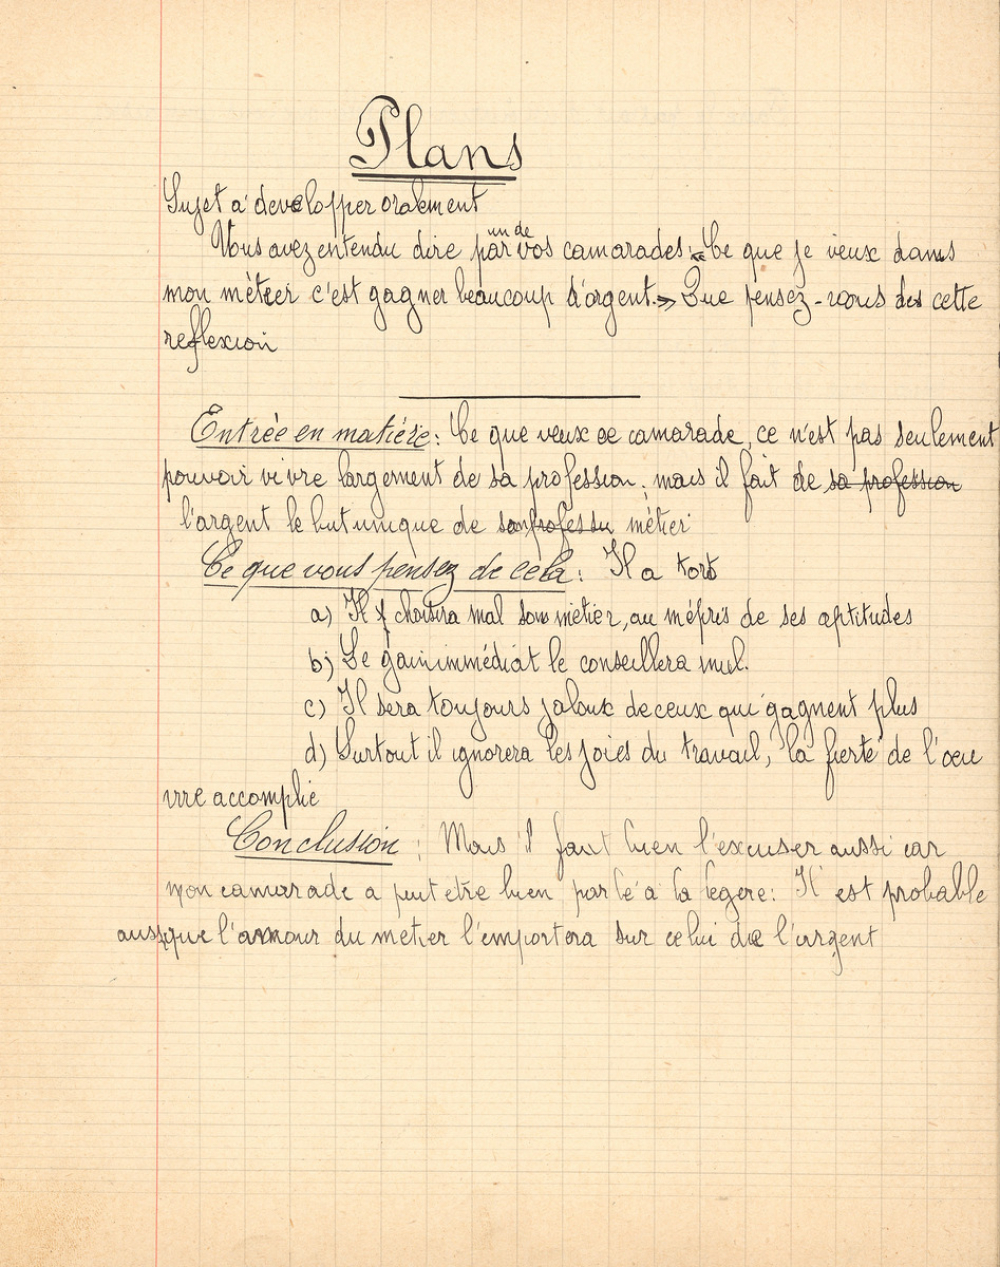 Plans
Sujet a developper oralement
Vous avez entendu dire par un de vos camarades: « Ce que je veux dans
mon mètier c'est gagner beaucoup d'argent. » Que pensez-vous de cette
reflexion
Entrée en matière: Ce que veux ce camarade, ce n'est pas seulement
pouvoir vivre largement de sa profession; mais il fait de sa profession
l'argent le but unique de son métier
Ce que vous pensez de cela: Il a tort
a) Il choisira mal son métier, au mépris de ses aptitudes
b) Le gain immédiat le conseillera mal.
c) Il sera toujours jaloux de ceux qui gagnent plus
d) Surtout il ignorera les joies du travail, la fierté de l'oeu
vre accomplie
Conclusion: Mais il faut bien l'excuser aussi car
mon camarade a peut etre bien parlé a la legere: Il est probable
aussi que l'amour du metier l'emportera sur celui de l'argent